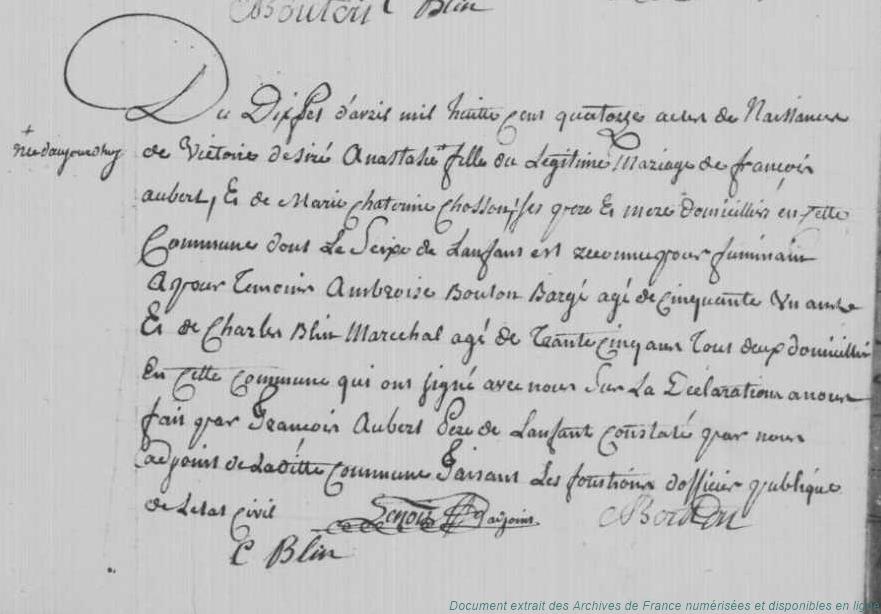 Bouton C Blin
Du Dixsept d'avril mil huitte Cent quatorze acte de Naissance
+ née d'aujourdhuy
de Victoire desiré Anastasie + fille du Legitime Mariage de françois
aubert, Et de Marie Chaterine Chosson, ses pere Et mere domicilliés en Cette
Commune dont Le Seixe de Lanfant est reconnu pour fuminain
A pour Temoins Ambroise Bouton Bargé agé de Cinquante Un ans
Et de Charles Blin Marechal agé de Trante Cinq ans Tous deux domicilliés
En Cette Commune qui ont signé avec nous Sur La Déclaration a nous
fait par François Aubert Pere de Lanfant Constaté par nous
adjoint de Laditte Commune Faisant Les fonctions dofficier publique
de Letat Civil
adjoint
Bouton
C Blin
Document extrait des Archives de France numérisées et disponibles en ligne